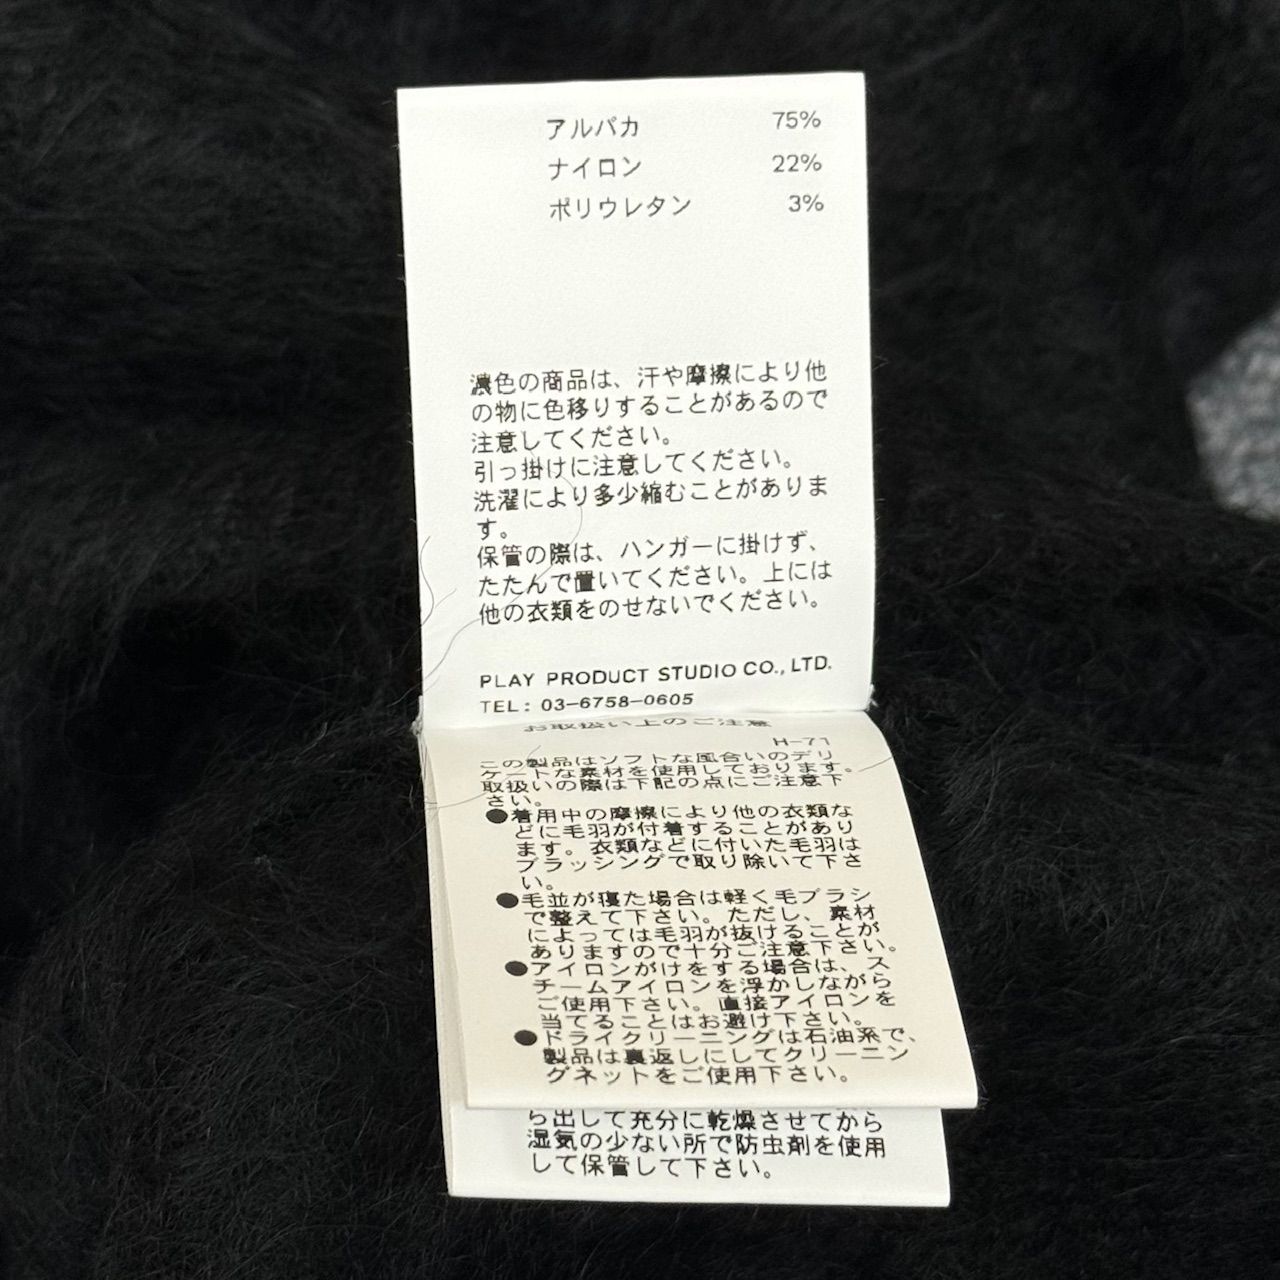 アルパカ 75%
ナイロン 22%
ポリウレタン 3%
濃色の商品は、汗や摩擦により他
の物に色移りすることがあるので
注意してください。
引っ掛けに注意してください。
洗濯により多少縮むことがありま
す。
保管の際は、ハンガーに掛けず、
たたんで置いてください。上には
他の衣類をのせないでください。
PLAY PRODUCT STUDIO CO., LTD.
TEL: 03-6758-0605
お取扱い上のご注意
H-71
この製品はソフトな風合いのデリ
ケートな素材を使用しております。
取扱いの際は下記の点にご注意下
さい。
●着用中の摩擦により他の衣類な
どに毛羽が付着することがあり
ます。衣類などに付いた毛羽は
ブラッシングで取り除いて下さ
い。
●毛並が寝た場合は軽く毛ブラシ
で整えて下さい。ただし、素材
によっては毛羽が抜けることが
ありますので十分ご注意下さい。
●アイロンがけをする場合は、ス
チームアイロンを浮かしながら
ご使用下さい。直接アイロンを
当てることはお避け下さい。
●ドライクリーニングは石油系で、
製品は裏返しにしてクリーニン
グネットをご使用下さい。
ら出して充分に乾燥させてから
湿気の少ない所で防虫剤を使用
して保管して下さい。